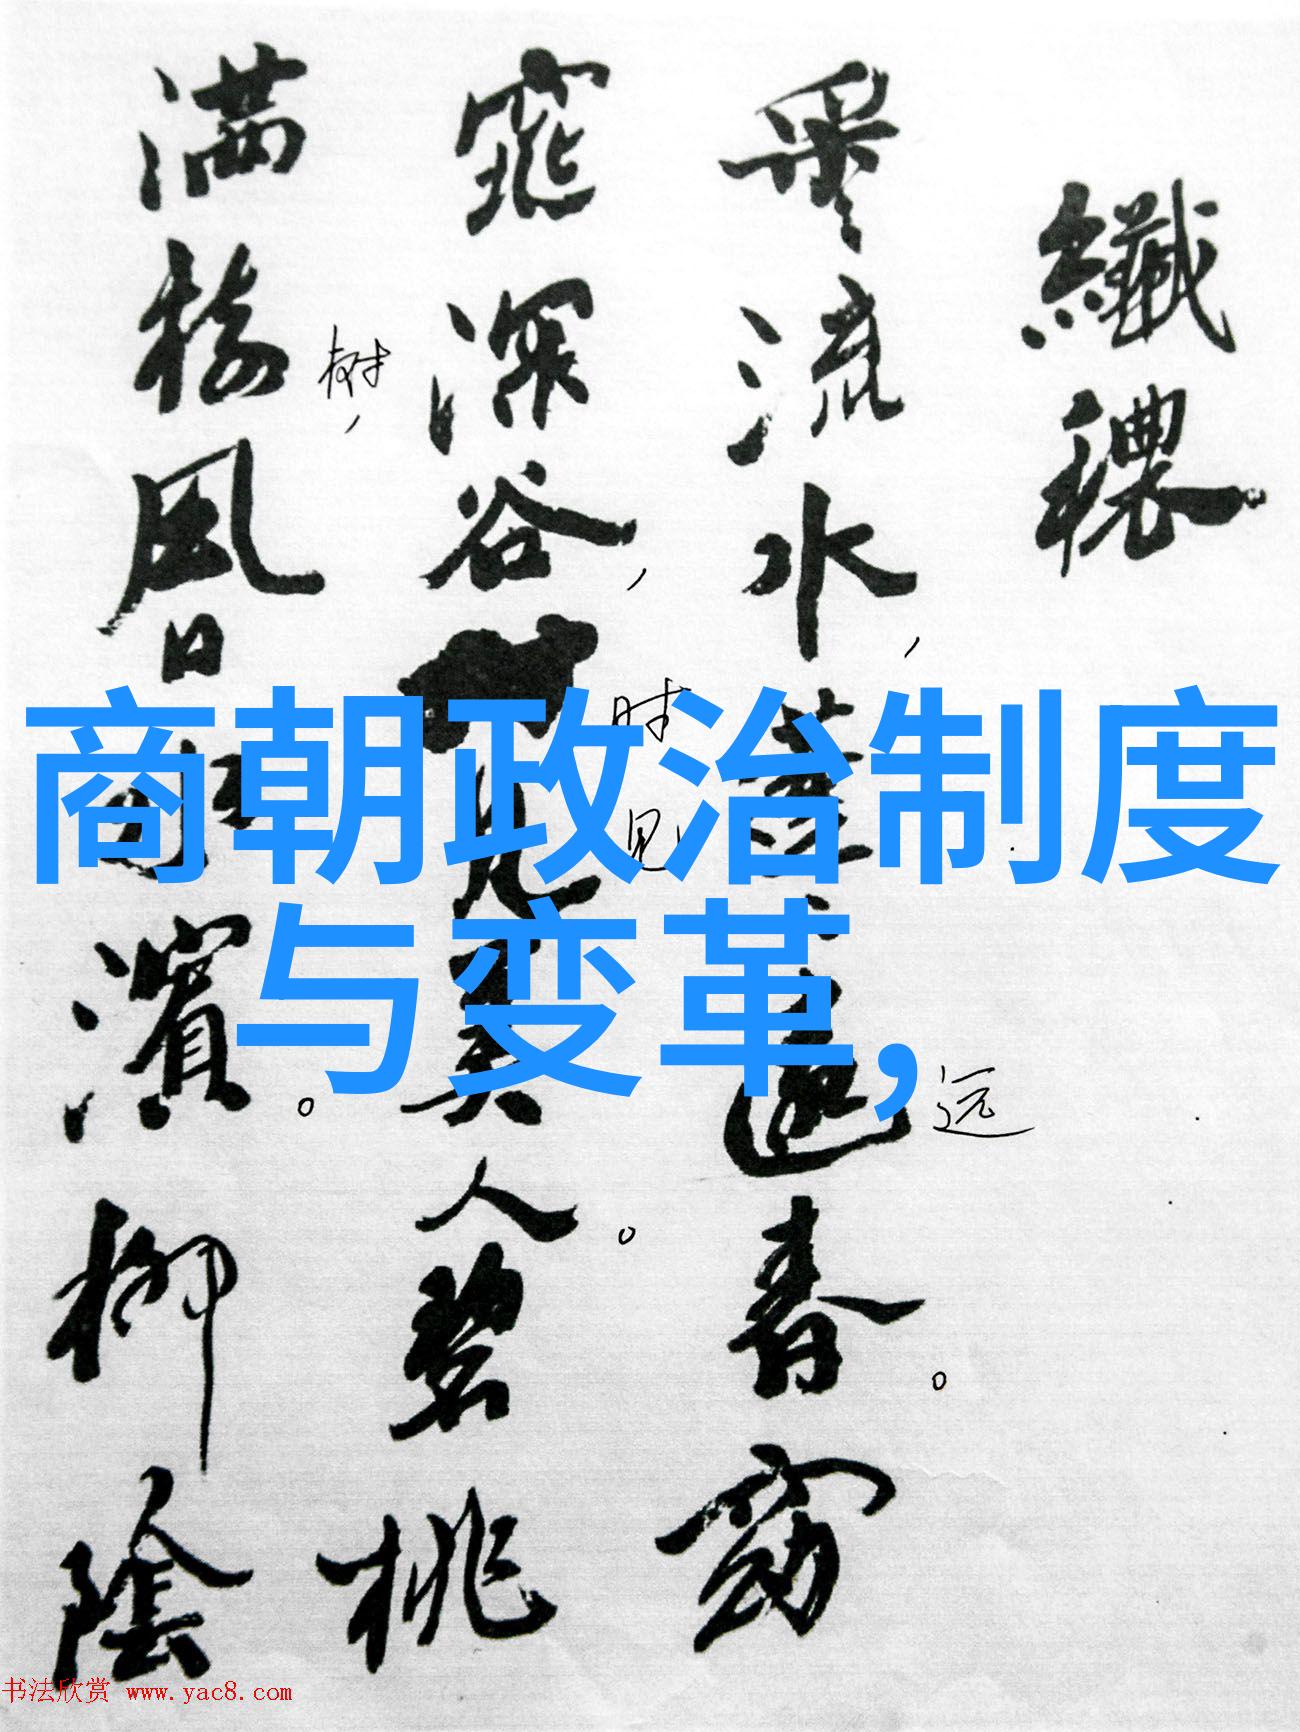 纖穠
采〻流水，蓬〻遠春。窈
远
窕深谷，見美人。碧桃
时
见
满樹風日水濱。柳陰
树，
商朝政治制度
与变革,
书法欣赏 www.yac8.com